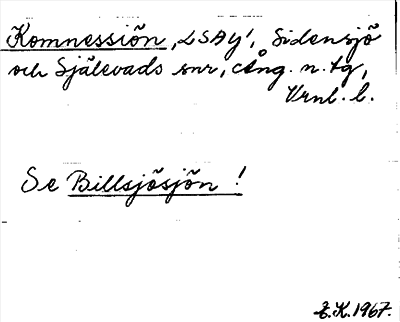 Komnessjön, „LSAY", Sidensjö
och Själevads snr, Ång. n. tg,
Vrnl. l.
Se Billsjösjön !
E.K. 1967.